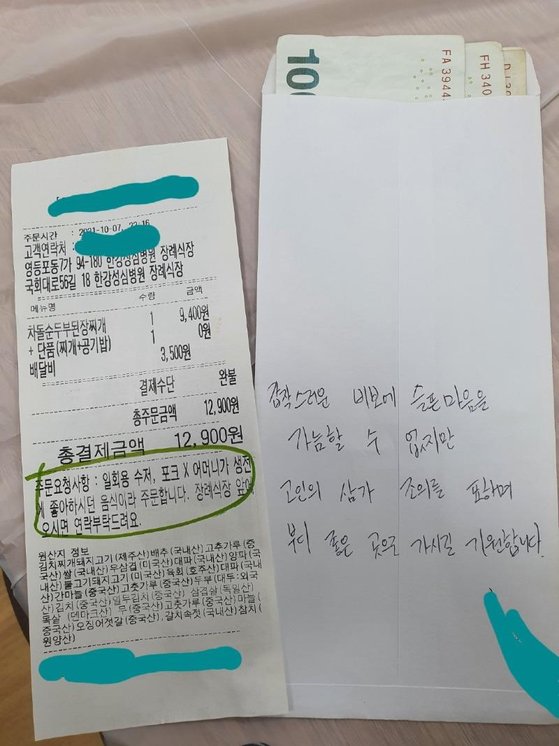 주문시간 : 2021-10-07, 22:16
고객연락처 :
영등포동7가 94-180 한강성심병원 장례식장
국회대로56길 18 한강성심병원 장례식장
메뉴명 수량 금액
차돌순두부된장찌개 1 9,400원
+ 단품(찌개+공기밥) 1 0원
배달비 3,500원
결제수단 완불
총주문금액 12,900원
총결제금액 12,900원
주문요청사항 : 일회용 수저, 포크 X 어머니가 생전
에 좋아하시던 음식이라 주문합니다. 장례식장 앞에
오시면 연락부탁드려요.
원산지 정보
김치찌개돼지고기(제주산)배추(국내산)고춧가루(중
국산)쌀(국내산)우삼겹(미국산)대파(국내산)양파(국
내산)불고기돼지고기(미국산)육회(호주산)대파(국내
산)간마늘(중국산)고춧가루(중국산)두부(대두:외국
산)김치(중국산)만두김치(중국산) 삼겹살(독일산)
목살(덴마크산) 무(중국산)고춧가루(중국산)마늘(
중국산)오징어젓갈(중국산), 갈치속젓(국내산)참치(
원양산)
100
FA 3944
FH 340
갑작스러운 비보에 슬픈마음을
가늠할 수 없지만
고인의 삼가 조의를 표하며
부디 좋은 곳으로 가시길 기원합니다.